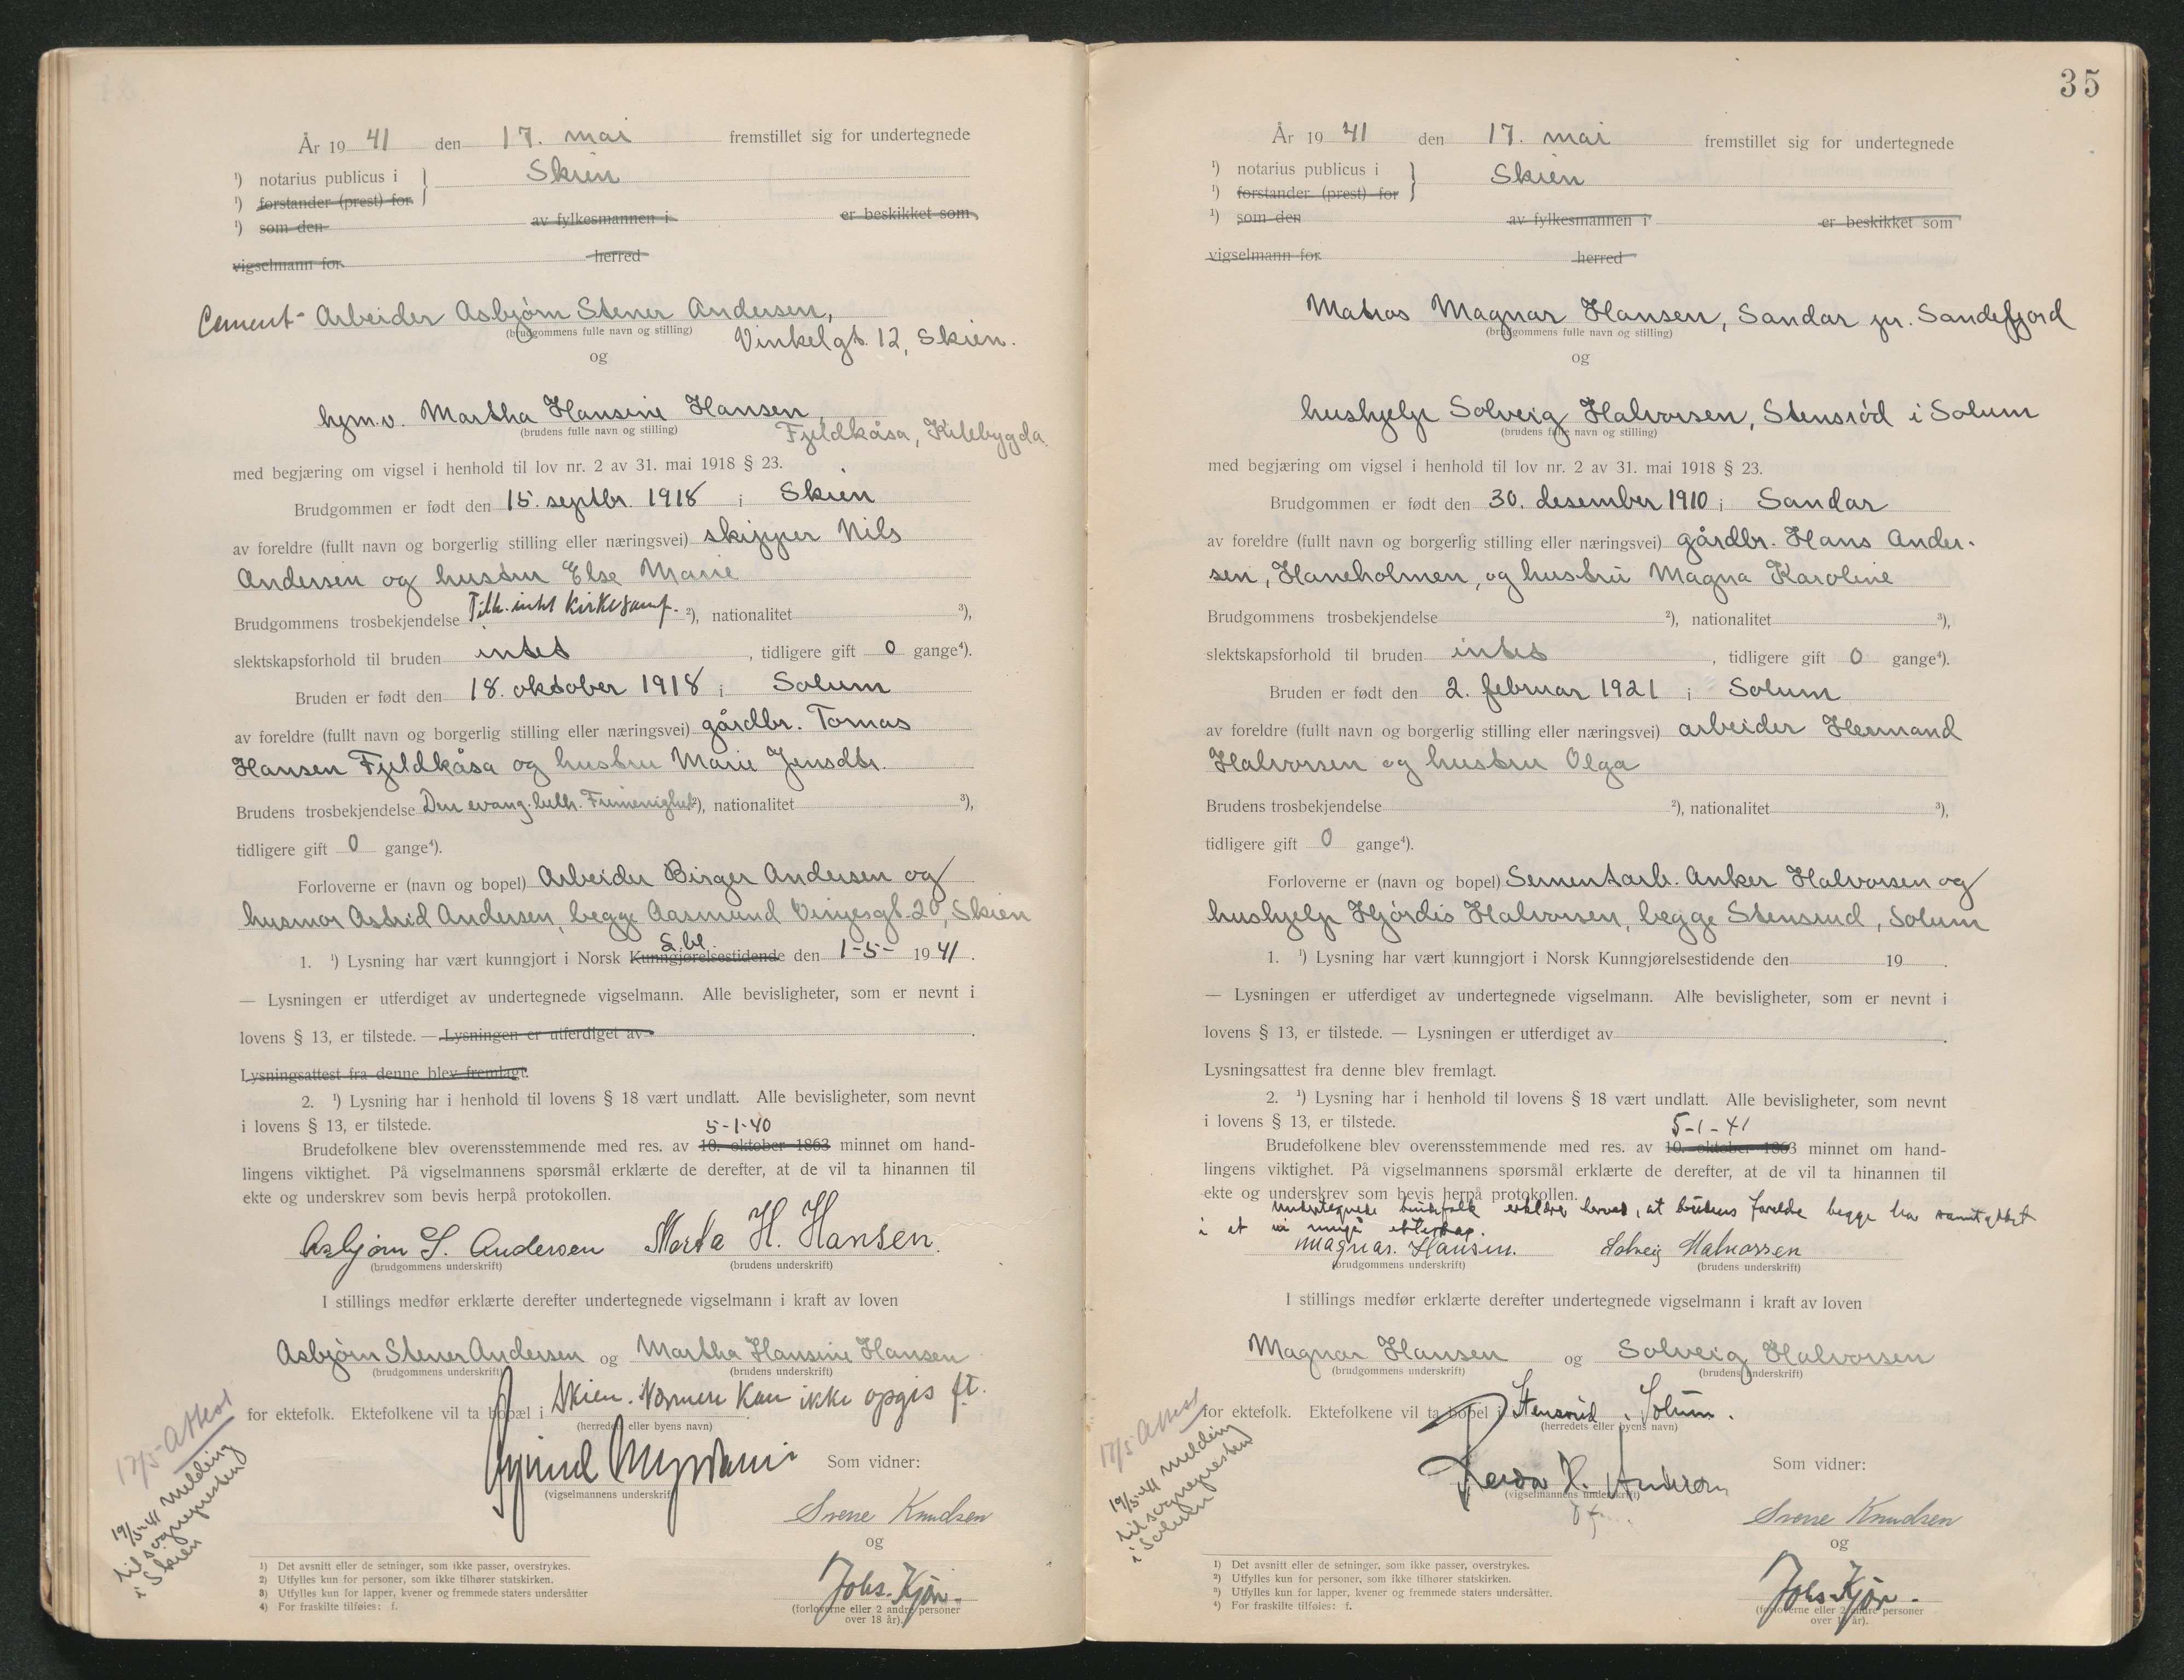 År 19 41 den 17. mai fremstillet sig for undertegnede
¹) notarius publicus i } Skien
¹) forstander (prest) for
¹) som den av fylkesmannen i er beskikket som
vigselmann for herred
Cement- Arbeider Asbjørn Stener Andersen,
(brudgommens fulle navn og stilling)
Vinkelgt. 12, Skien.
og
hjm.v. Martha Hansine Hansen,
(brudens fulle navn og stilling)
Fjeldkåsa, Kilebygda.
med begjæring om vigsel i henhold til lov nr. 2 av 31. mai 1918 § 23.
Brudgommen er født den 15. septbr. 1918 i Skien
av foreldre (fullt navn og borgerlig stilling eller næringsvei) skipper Nils
Andersen og hustru Else Marie
Brudgommens trosbekjendelse Tilh. intet kirkesamf. ²), nationalitet ³),
slektskapsforhold til bruden intet, tidligere gift 0 gange⁴).
Bruden er født den 18. oktober 1918 i Solum
av foreldre (fullt navn og borgerlig stilling eller næringsvei) gårdbr. Tomas
Hansen Fjeldkåsa og hustru Marie Jensdtr.
Brudens trosbekjendelse Den evang. luth. Frimenighet ²), nationalitet ³),
tidligere gift 0 gange⁴).
Forloverne er (navn og bopel) Arbeider Birger Andersen og
husmor Astrid Andersen, begge Aasmund Vinjesgt. 20, Skien
S. bl.
1. ¹) Lysning har vært kunngjort i Norsk Kunngjørelsestidende den 1-5- 19 41.
— Lysningen er utferdiget av undertegnede vigselmann. Alle bevisligheter, som er nevnt i
lovens § 13, er tilstede. — Lysningen er utferdiget av .
Lysningsattest fra denne blev fremlagt.
2. ¹) Lysning har i henhold til lovens § 18 vært undlatt. Alle bevisligheter, som nevnt
i lovens § 13, er tilstede.
5-1-40
Brudefolkene blev overensstemmende med res. av 10. oktober 1863 minnet om hand-
lingens viktighet. På vigselmannens spørsmål erklærte de derefter, at de vil ta hinannen til
ekte og underskrev som bevis herpå protokollen.
Asbjørn S. Andersen Marta H. Hansen.
(brudgommens underskrift) (brudens underskrift)
I stillings medfør erklærte derefter undertegnede vigselmann i kraft av loven
Asbjørn Stener Andersen og Martha Hansine Hansen
(brudgommens underskrift) (brudens underskrift)
for ektefolk. Ektefolkene vil ta bopæl i Skien. Nærmere kan ikke opgis ft.
(herredets eller byens navn)
Som vidner:
(vigselmannens underskrift)
Sverre Knudsen
og
Johs. Kjær.
(forloverne eller 2 andre personer
over 18 år).
17/5 Attest
19/5-41 melding
til sognepresten
i Skien
1) Det avsnitt eller de setninger, som ikke passer, overstrykes.
2) Utfylles kun for personer, som ikke tilhører statskirken.
3) Utfylles kun for lapper, kvener og fremmede staters undersåtter
4) For fraskilte tilføies: f.
35
År 19 41 den 17. mai fremstillet sig for undertegnede
¹) notarius publicus i } Skien
¹) forstander (prest) for
¹) som den av fylkesmannen i er beskikket som
vigselmann for herred
Matros Magnar Hansen, Sandar pr. Sandefjord
(brudgommens fulle navn og stilling)
og
hushjelp Solveig Halvorsen, Stensrød i Solum
(brudens fulle navn og stilling)
med begjæring om vigsel i henhold til lov nr. 2 av 31. mai 1918 § 23.
Brudgommen er født den 30. desember 1910 i Sandar
av foreldre (fullt navn og borgerlig stilling eller næringsvei) gårdbr. Hans Ander-
sen, Haneholmen, og hustru Magna Karoline
Brudgommens trosbekjendelse ²), nationalitet ³),
slektskapsforhold til bruden intet, tidligere gift 0 gange⁴).
Bruden er født den 2. februar 1921 i Solum
av foreldre (fullt navn og borgerlig stilling eller næringsvei) arbeider Hermand
Halvorsen og hustru Olga
Brudens trosbekjendelse ²), nationalitet ³),
tidligere gift 0 gange⁴).
Forloverne er (navn og bopel) Sementarb. Anker Halvorsen og
hushjelp Hjørdis Halvorsen, begge Stensrud, Solum
1. ¹) Lysning har vært kunngjort i Norsk Kunngjørelsestidende den 19 .
— Lysningen er utferdiget av undertegnede vigselmann. Alle bevisligheter, som er nevnt i
lovens § 13, er tilstede. — Lysningen er utferdiget av .
Lysningsattest fra denne blev fremlagt.
2. ¹) Lysning har i henhold til lovens § 18 vært undlatt. Alle bevisligheter, som nevnt
i lovens § 13, er tilstede.
5-1-41
Brudefolkene blev overensstemmende med res. av 10. oktober 1863 minnet om hand-
lingens viktighet. På vigselmannens spørsmål erklærte de derefter, at de vil ta hinannen til
ekte og underskrev som bevis herpå protokollen.
Undertegnede brudefolk erklærer herved, at brudens foreldre begge har samtykket
i at vi inngå ekteskap.
Magnar. Hansen. Solveig Halvorsen
(brudgommens underskrift) (brudens underskrift)
I stillings medfør erklærte derefter undertegnede vigselmann i kraft av loven
Magnar Hansen og Solveig Halvorsen
(brudgommens underskrift) (brudens underskrift)
for ektefolk. Ektefolkene vil ta bopel i Stensrud i Solum.
(herredets eller byens navn)
Som vidner:
(vigselmannens underskrift)
Sverre Knudsen
og
Johs. Kjær.
(forloverne eller 2 andre personer
over 18 år).
17/5 Attest
19/5-41 melding
til sognepresten
i Solum
1) Det avsnitt eller de setninger, som ikke passer, overstrykes.
2) Utfylles kun for personer, som ikke tilhører statskirken.
3) Utfylles kun for lapper, kvener og fremmede staters undersåtter.
4) For fraskilte tilføies: f.